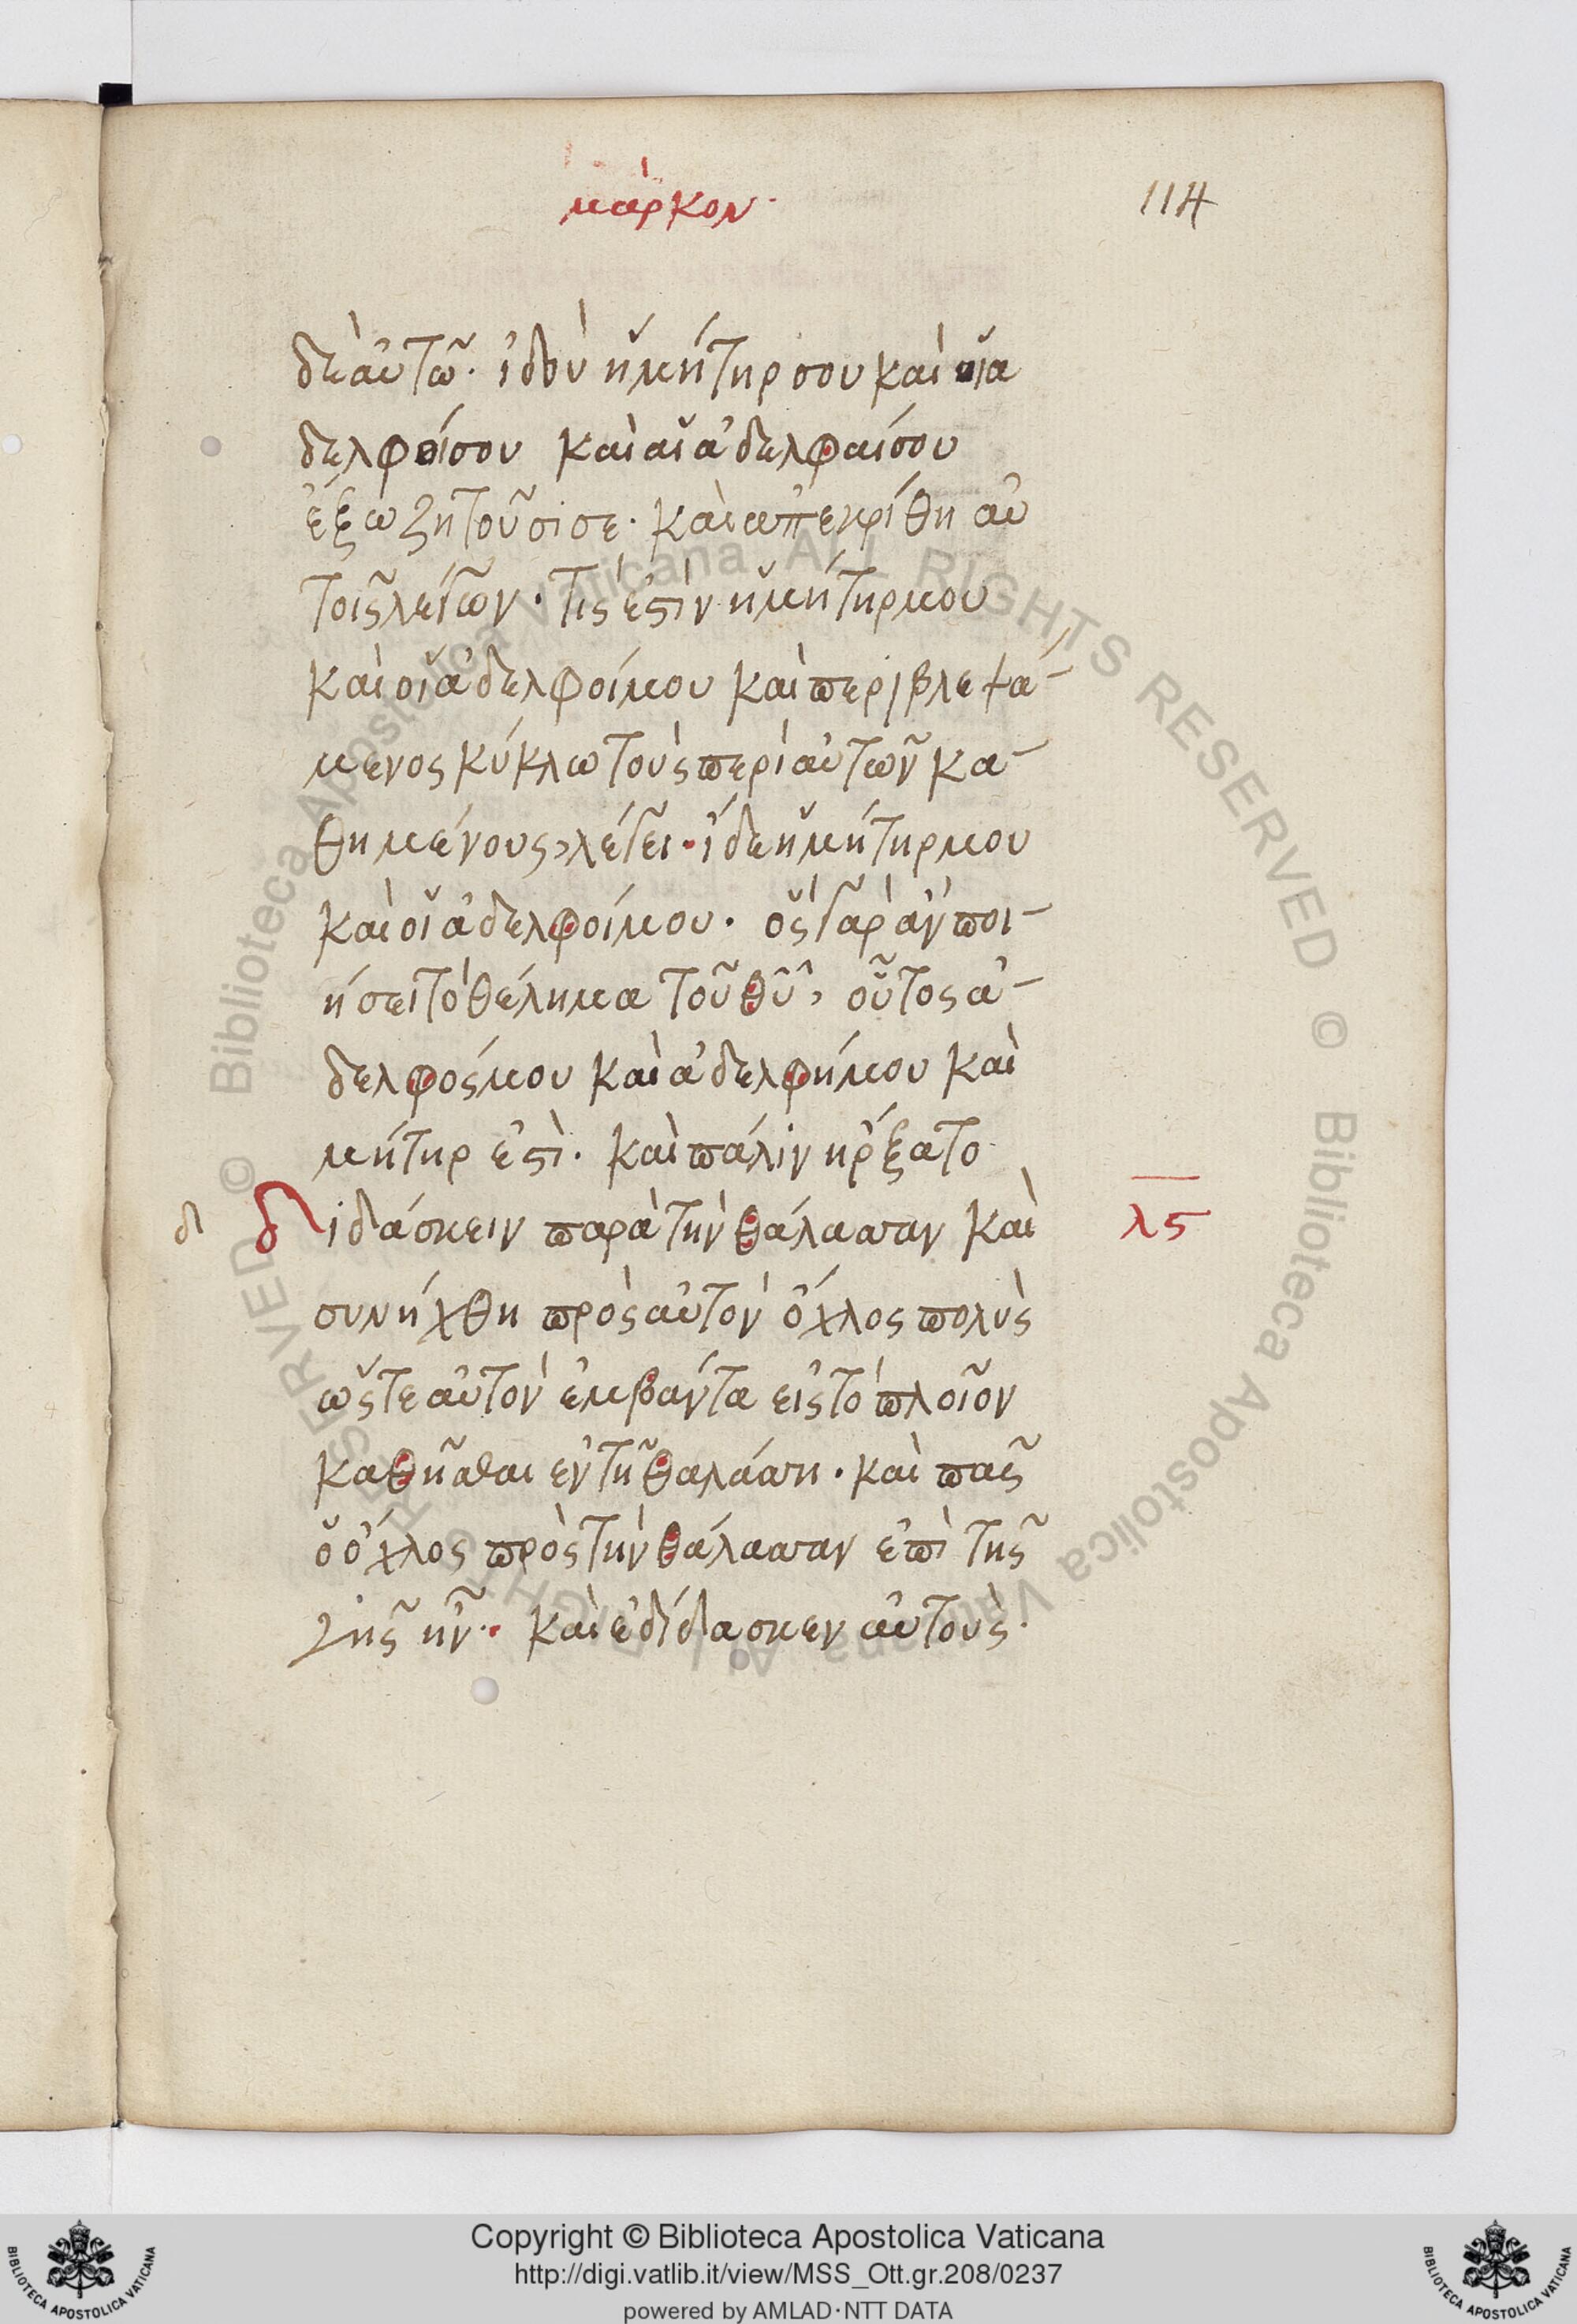 μάρκον·
114
δὲ αὐτῶ· ἰδοὺ ἡ μήτηρ σου καὶ οἱ ἀ
δελφοί σου καὶ αἱ ἀδελφαί σου
ἔξω ζητοῦσί σε· καὶ ἀπεκρίθη αὐ
τοῖς λέγων· τίς ἐστὶν ἡ μήτηρ μου
καὶ οἱ ἀδελφοί μου καὶ περιβλεψά-
μενος κύκλω τοὺς περὶ αὐτῶν κα-
θημένους, λέγει· ἴδε ἡ μήτηρ μου
καὶ οἱ ἀδελφοί μου· ὃς γὰρ ἂν ποι-
ήσει τὸ θέλημα τοῦ θῦ, οὗτος ἀ-
δελφός μου καὶ ἀδελφή μου καὶ
μήτηρ ἐστὶ· καὶ πάλιν ἤρξατο
δ διδάσκειν παρὰ τὴν θάλασσαν καὶ λϛ
συνήχθη πρὸς αὐτὸν ὄχλος πολὺς
ὥστε αὐτὸν ἐμβάντα εἰς τὸ πλοῖον
καθῆσθαι ἐν τῆ θαλάσση· καὶ πᾶς
ὁ ὄχλος πρὸς τὴν θάλασσαν ἐπὶ τῆς
γῆς ἦν· καὶ ἐδίδασκεν αὐτοὺς·
Copyright © Biblioteca Apostolica Vaticana
http://digi.vatlib.it/view/MSS_Ott.gr.208/0237
powered by AMLAD·NTT DATA